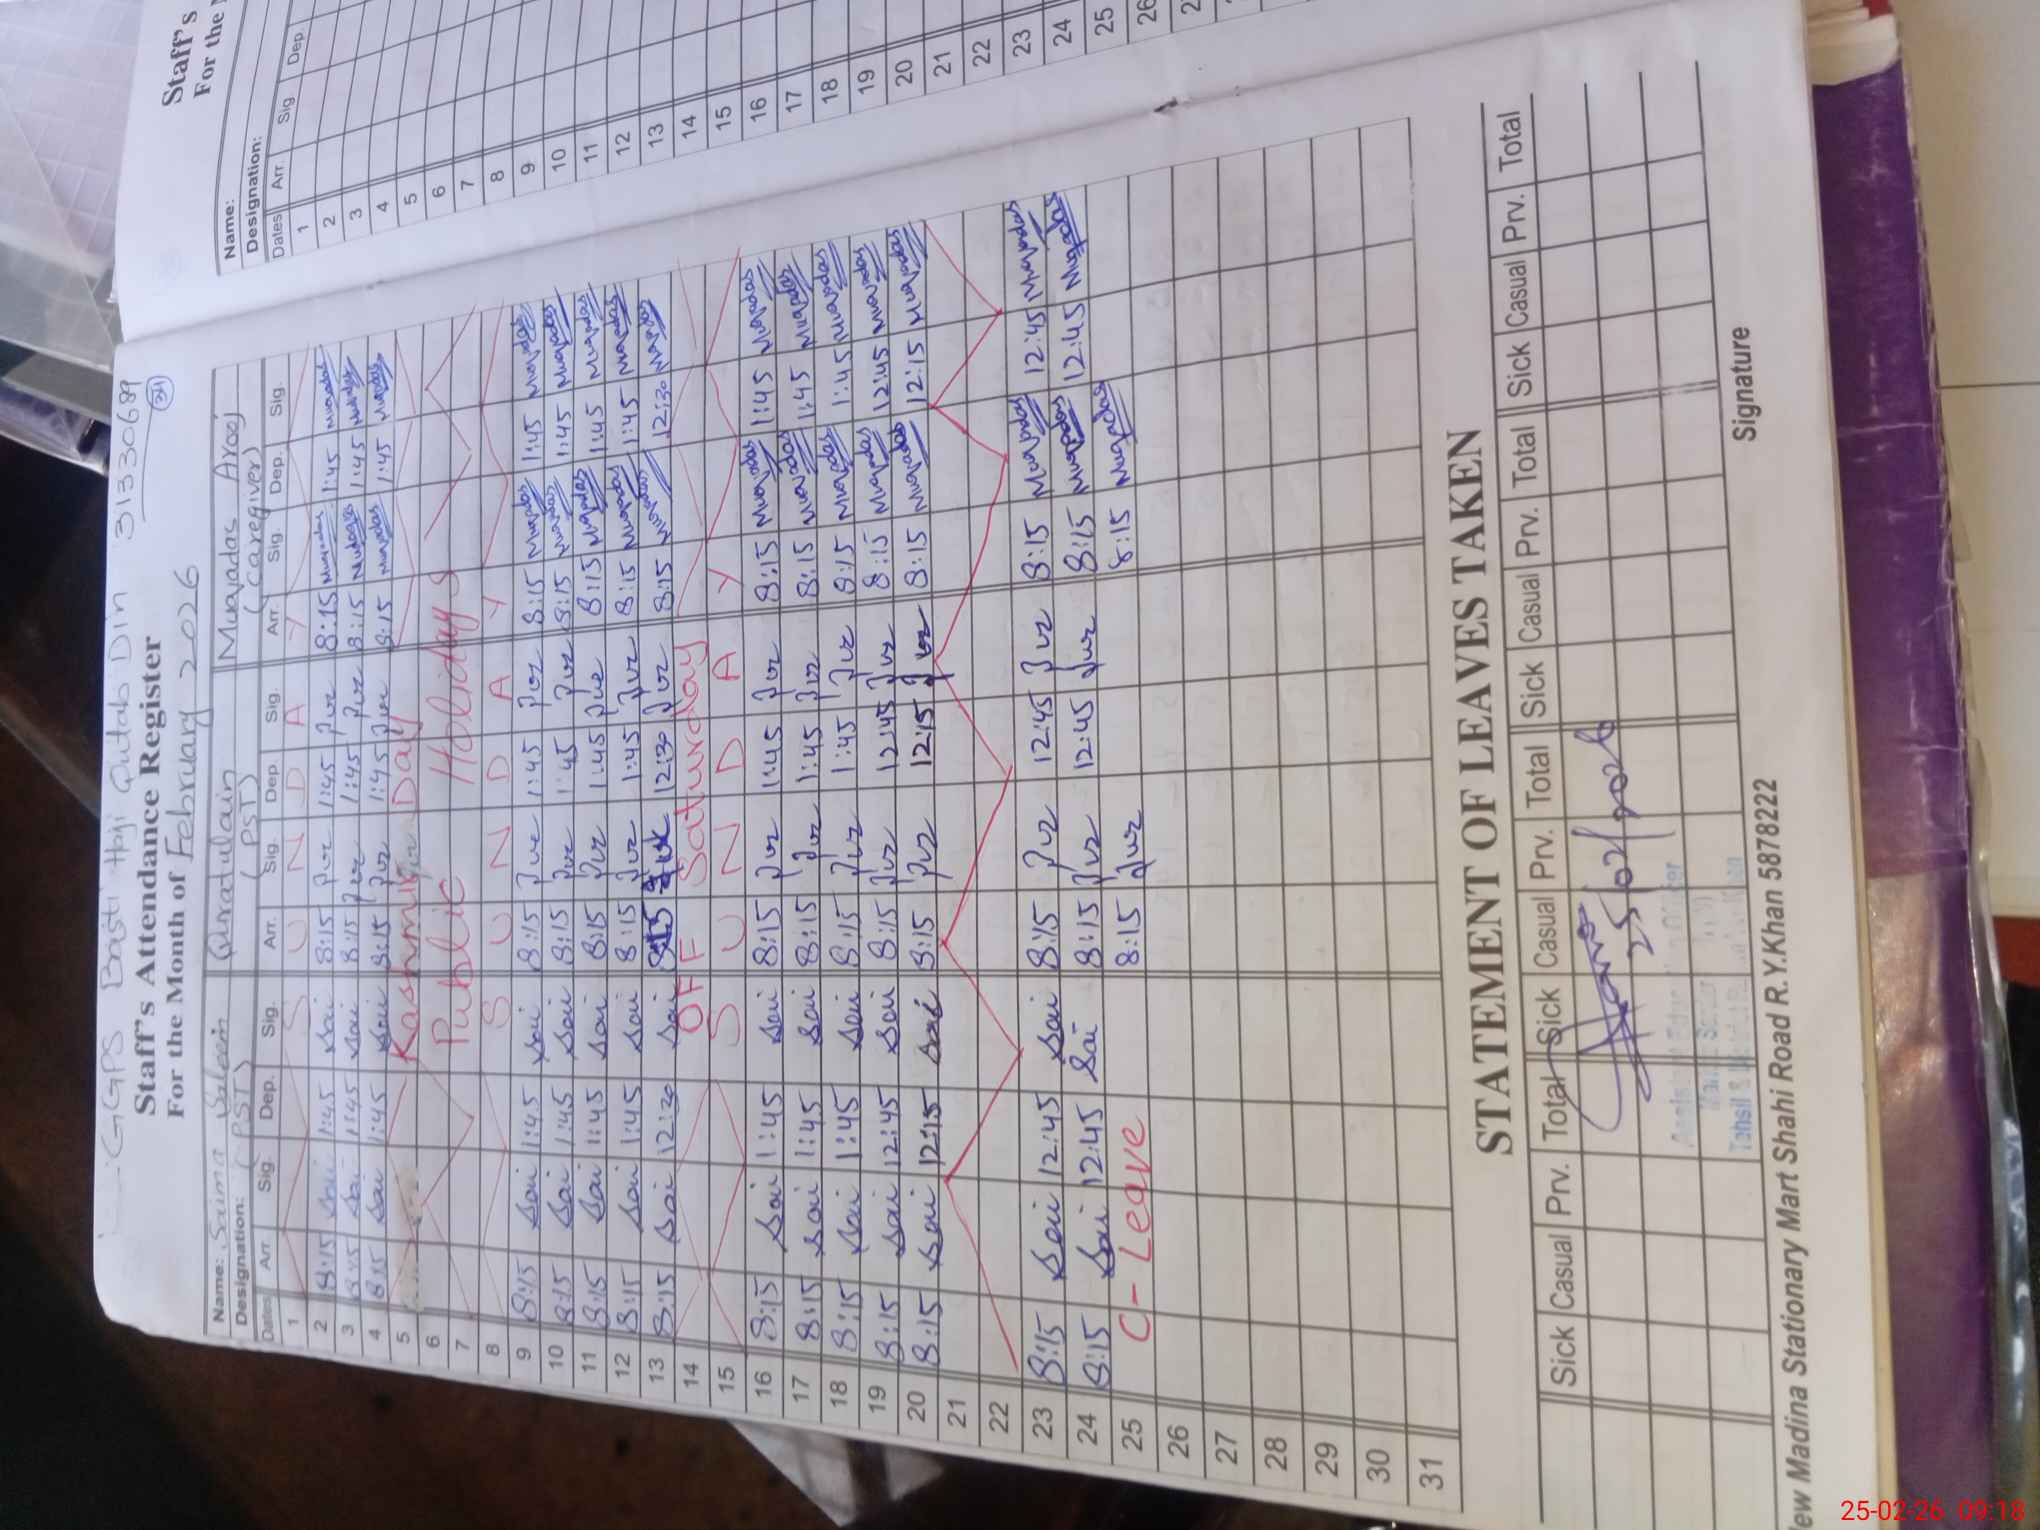 GGPS Basti Haji Qutab Din 31330689
Staff's Attendance Register
34
For the Month of February 2026
Name: Saima Saleem Quratulain Muqadas Arooj
Designation: (PST) (PST) (Caregiver)
Dates Arr. Sig. Dep. Sig. Arr. Sig. Dep Sig. Arr. Sig. Dep. Sig.
1 S U N D A Y
2 8:15 Sai 1:45 Sai 8:15 1:45 8:15 Muqadas 1:45 Muqadas
3 8:15 Sai 1:45 Sai 8:15 1:45 8:15 Muqadas 1:45 Muqadas
4 8:15 Sai 1:45 Sai 8:15 1:45 8:15 Muqadas 1:45 Muqadas
5 Kashmir Day
6 Public Holidays
7
8 S U N D A Y
9 8:15 Sai 1:45 Sai 8:15 1:45 8:15 Muqadas 1:45 Muqadas
10 8:15 Sai 1:45 Sai 8:15 1:45 8:15 Muqadas 1:45 Muqadas
11 8:15 Sai 1:45 Sai 8:15 1:45 8:15 Muqadas 1:45 Muqadas
12 8:15 Sai 1:45 Sai 8:15 1:45 8:15 Muqadas 1:45 Muqadas
13 8:15 Sai 12:30 Sai 8:15 12:30 8:15 Muqadas 12:30 Muqadas
14 OFF Saturday
15 S U N D A Y
16 8:15 Sai 1:45 Sai 8:15 1:45 8:15 Muqadas 1:45 Muqadas
17 8:15 Sai 1:45 Sai 8:15 1:45 8:15 Muqadas 1:45 Muqadas
18 8:15 Sai 1:45 Sai 8:15 1:45 8:15 Muqadas 1:45 Muqadas
19 8:15 Sai 12:45 Sai 8:15 12:45 8:15 Muqadas 12:45 Muqadas
20 8:15 Sai 12:15 Sai 8:15 12:15 8:15 Muqadas 12:15 Muqadas
21
22
23 8:15 Sai 12:45 Sai 8:15 12:45 8:15 Muqadas 12:45 Muqadas
24 8:15 Sai 12:45 Sai 8:15 12:45 8:15 Muqadas 12:45 Muqadas
25 C-Leave 8:15 8:15 Muqadas
26
27
28
29
30
31
STATEMENT OF LEAVES TAKEN
Sick Casual Prv. Total Sick Casual Prv. Total Sick Casual Prv. Total Sick Casual Prv. Total
25/02/2026
Signature
New Madina Stationary Mart Shahi Road R.Y.Khan 5878222
Staff's
For the
Name:
Designation:
Dates Arr. Sig Dep.
1
2
3
4
5
6
7
8
9
10
11
12
13
14
15
16
17
18
19
20
21
22
23
24
25
26
25-02-26 09:18